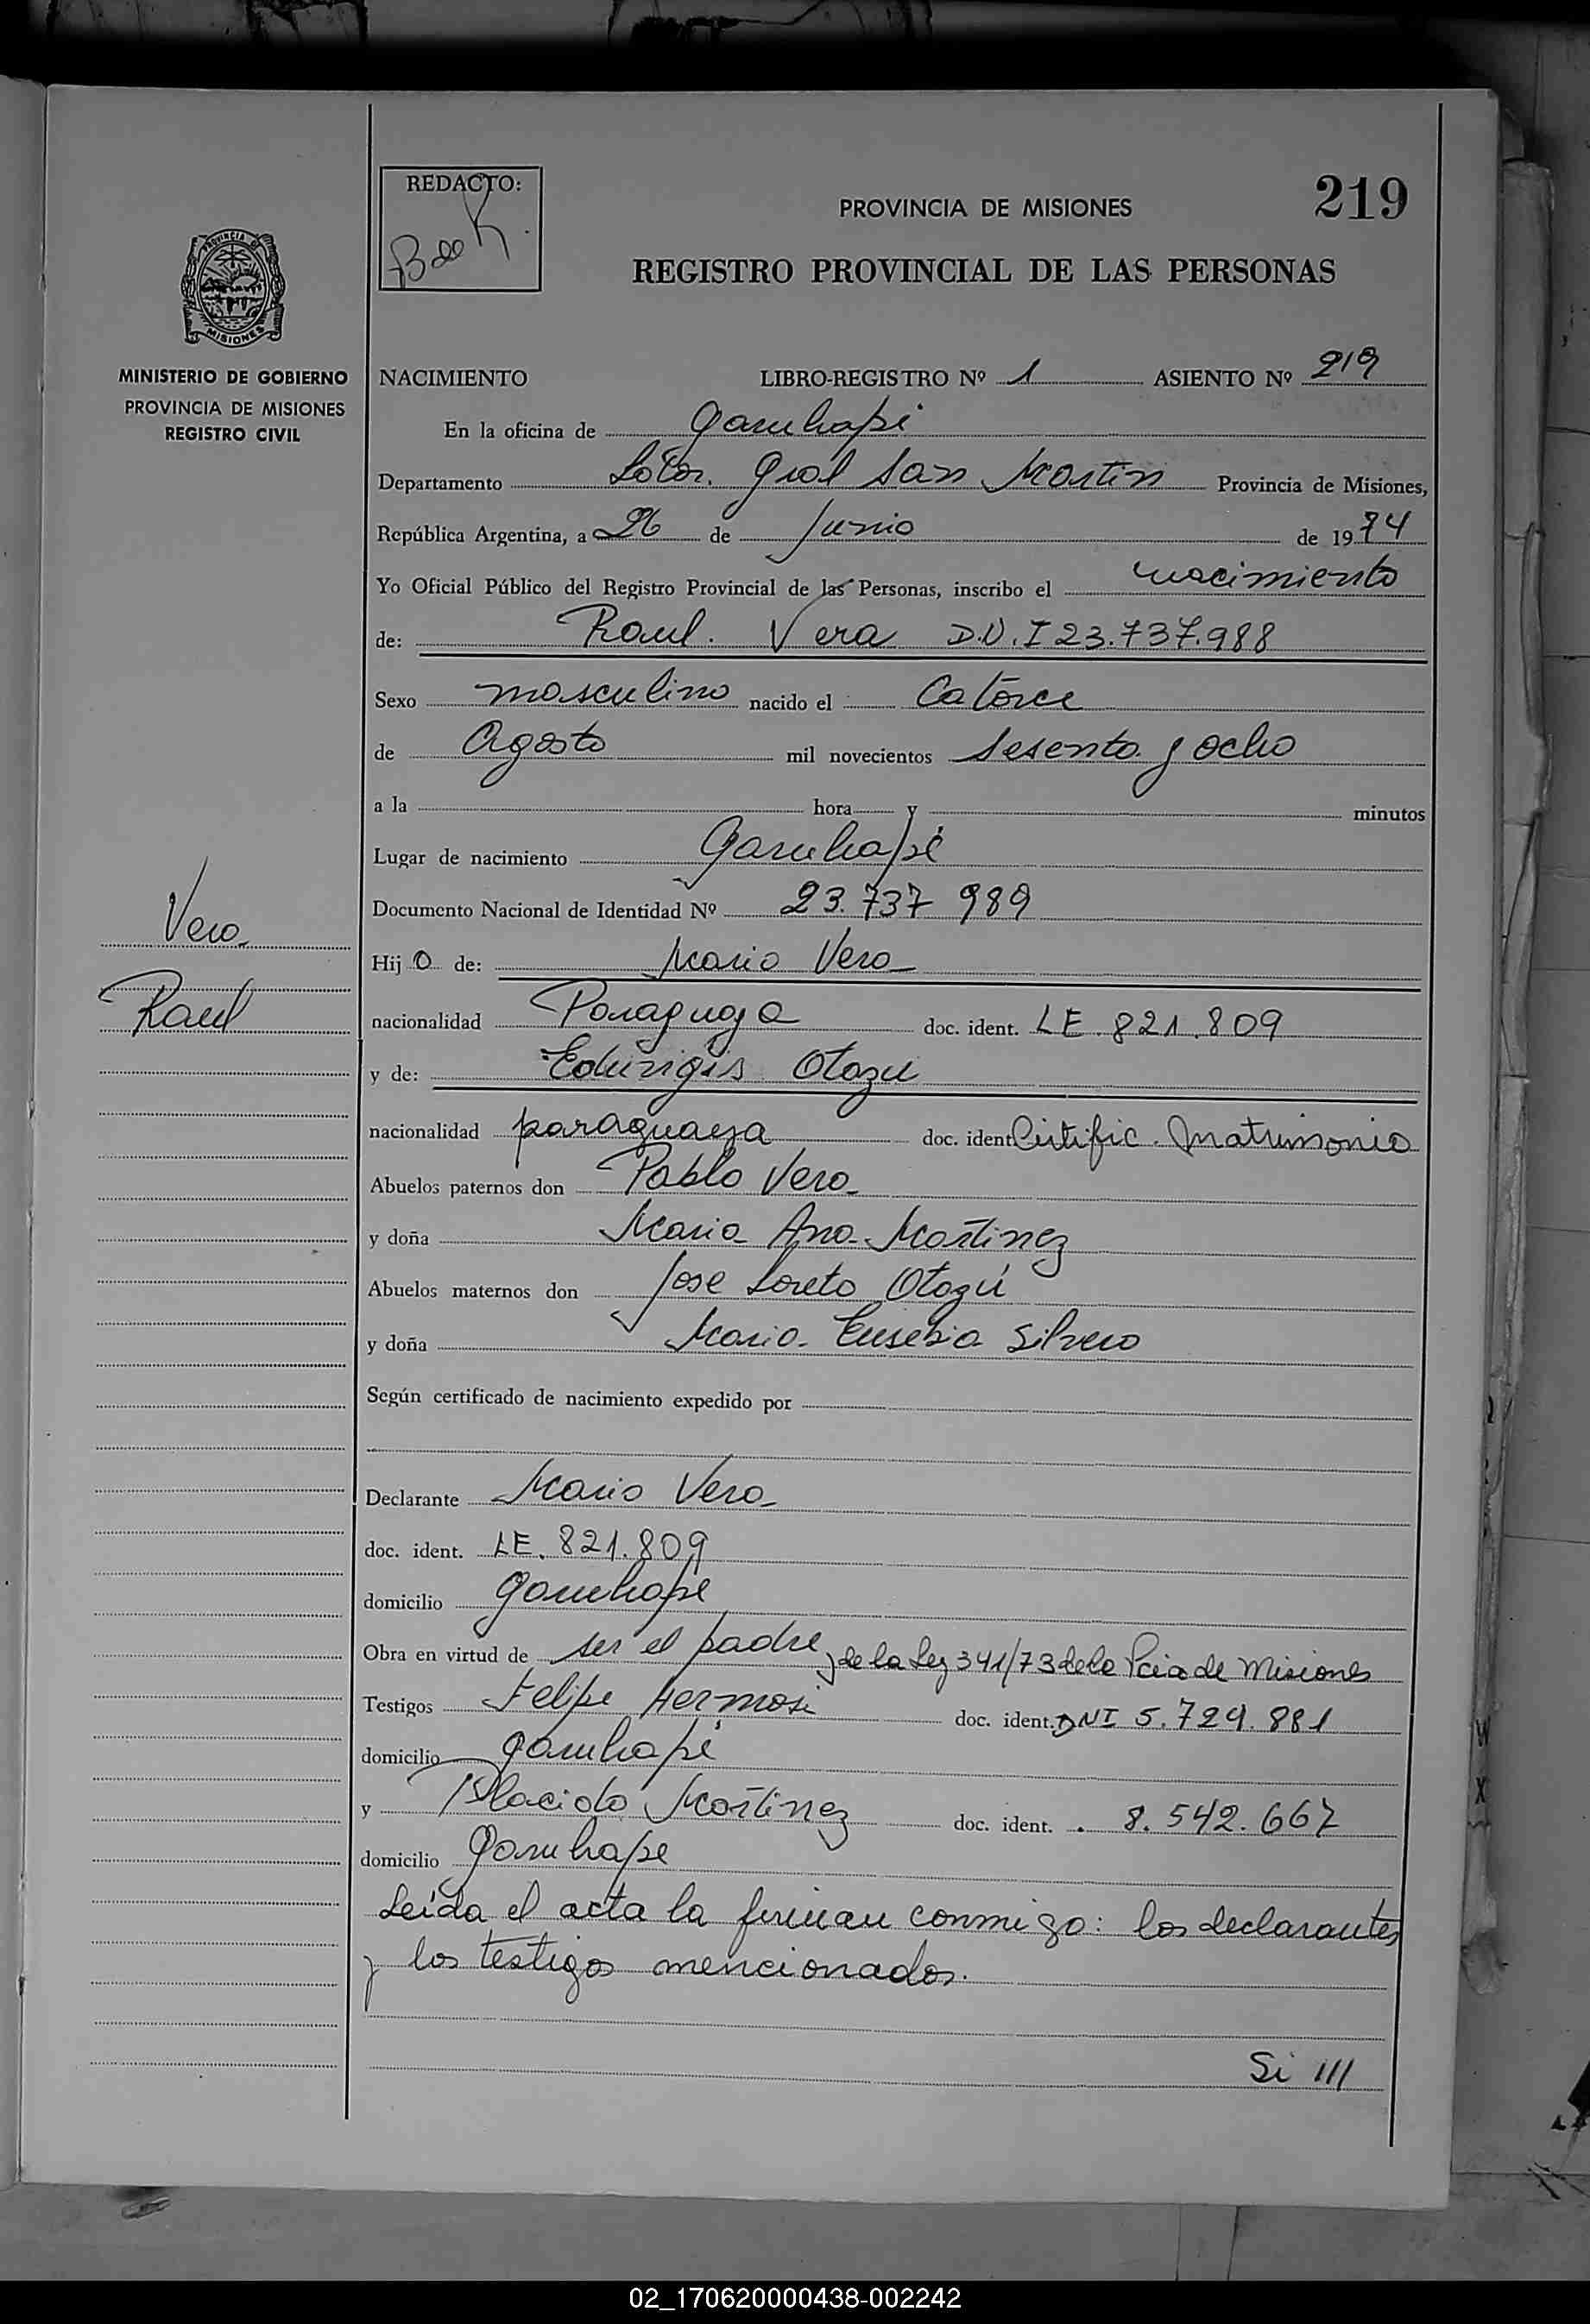 REDACTO:
PROVINCIA DE MISIONES
219
REGISTRO PROVINCIAL DE LAS PERSONAS
PROVINCIA DE
MISIONES
MINISTERIO DE GOBIERNO
PROVINCIA DE MISIONES
REGISTRO CIVIL
NACIMIENTO LIBRO-REGISTRO Nº 1 ASIENTO Nº 219
En la oficina de Garuhapé
Departamento Lðtor. Gral San Martin Provincia de Misiones,
República Argentina, a 26 de Junio de 1974
Yo Oficial Público del Registro Provincial de las Personas, inscribo el nacimiento
de: Raul. Vera D.N.I 23.737.988
Sexo masculino nacido el Catorce
de Agosto mil novecientos sesenta y ocho
a la hora y minutos
Lugar de nacimiento Garuhapé
Documento Nacional de Identidad Nº 23.737 989
Vera
Hijo de: Mario Vera
Raul
nacionalidad Paraguaya doc. ident. LE. 821.809
y de: Eduvigis Otazu
nacionalidad paraguaya doc. ident Certific. Matrimonio
Abuelos paternos don Pablo Vera
y doña Maria Ana Martinez
Abuelos maternos don Jose Loreto Otazú
y doña Maria Eusebia Silvero
Según certificado de nacimiento expedido por
Declarante Mario Vera
doc. ident. LE. 821.809
domicilio Garuhape
Obra en virtud de ser el padre y de la Ley 341/73 de la Pcia de Misiones
Testigos Felipe Hermosi doc. ident. DNI 5.729.881
domicilio Garuhapé
y Placido Martinez doc. ident. . 8.542.667
domicilio Garuhape
Leída el acta la firman conmigo: los declarantes
y los testigos mencionados.
Si ///
02_170620000438-002242